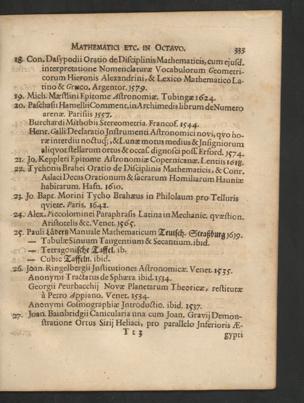 MATHEMATICI ETC. IN OCTAVO. 335
18. Con. Dasypodii Oratio de Disciplinis Mathematicis, cum ejusd.
interpretatione Nomenclaturæ Vocabulorum Geometri-
corum Hieronis Alexandrini, & Lexico Mathematico La-
tino & Græco. Argentor. 1579.
19. Mich. Mæstlini Epitome Astronomiæ. Tubingæ 1624.
20. Paschasii Hamellii Comment. in Archimedis librum de Numero
arenæ. Parisiis 1557.
Burchardi Mithobii Stereometria. Francof. 1544.
Henr. Galli Declaratio Instrumenti Astronomici novi, quo ho-
ræ interdiu noctuq; & Lunæ motus medius & Insigniorum
aliquot stellarum ortus & occas. dignosci poss. Erford. 1574.
21. Jo. Keppleri Epitome Astronomiæ Copernicanæ. Lentiis 1618.
22. Tychonis Brahei Oratio de Disciplinis Mathematicis, & Conr.
Aslaci Deca Orationum & sacrarum Homiliarum Hauniæ
habitarum. Hafn. 1610.
23. Jo. Bapt. Morini Tycho Brahæus in Philolaum pro Telluris
quiete. Paris. 1642.
24. Alex. Piccolominei Paraphrasis Latina in Mechanic. quæstion.
Aristotelis &c. Venet. 1565.
25. Pauli Manuale Mathematicum Teutsch. Straßburg 1639.
— Tabulæ Sinuum Tangentium & Secantium. ibid.
— Tetragonische Taffel. ib.
— Cubic Taffeln. ibid.
26. Joan. Ringelbergii Institutiones Astronomicæ. Venet. 1535.
Anonymi Tractatus de Sphæra ibid. 1534.
Georgii Peurbacchij Novæ Planetarum Theoricæ, restitutæ
à Petro Appiano. Venet. 1534.
Anonymi Cosmographiæ Introductio. ibid. 1537.
27. Joan. Bainbridgii Canicularia una cum Joan. Gravij Demon-
stratione Ortus Sirij Heliaci, pro parallelo Inferioris Æ-
T t 3 gypti